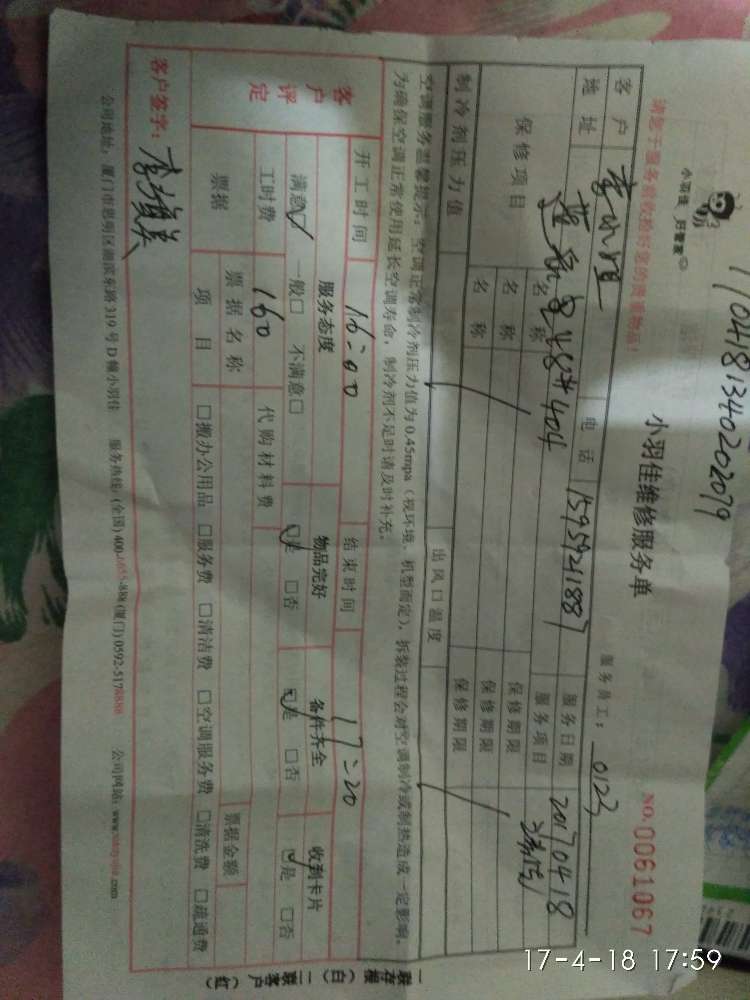 1704181340202079
小羽佳 好管家
小羽佳维修服务单
NO.0061067
请您于服务前收捡好您的贵重物品！
服务员工：0123
客户
电话 15959211887
服务日期 20170418
地址
服务项目
保修项目
名称
保修期限
名称
保修期限
名称
保修期限
制冷剂压力值
出风口温度
空调服务温馨提示：空调正常制冷剂压力值为0.45mpa（视环境、机型而定），拆装过程会对空调制冷或制热造成一定影响，
为确保空调正常使用延长空调寿命，制冷剂不足时请及时补充。
开工时间 16:00
结束时间 17:20
客户评定
服务态度
物品完好
备件齐全
收到卡片
满意□ 一般□ 不满意□
□是 □否
□是 □否
□是 □否
工时费 160
代购材料费
票据
票据名称
票据金额
项目
□搬办公用品 □服务费 □清洁费 □空调服务费 □清洗费 □疏通费
客户签字：
公司地址：厦门市思明区湖滨东路319号D幢小羽佳
服务热线：(全国)400-1655-888(厦门)0592-5178888
公司网站：www.xiaoyujia.com
一联存根（白） 二联客户（红）
17-4-18 17:59